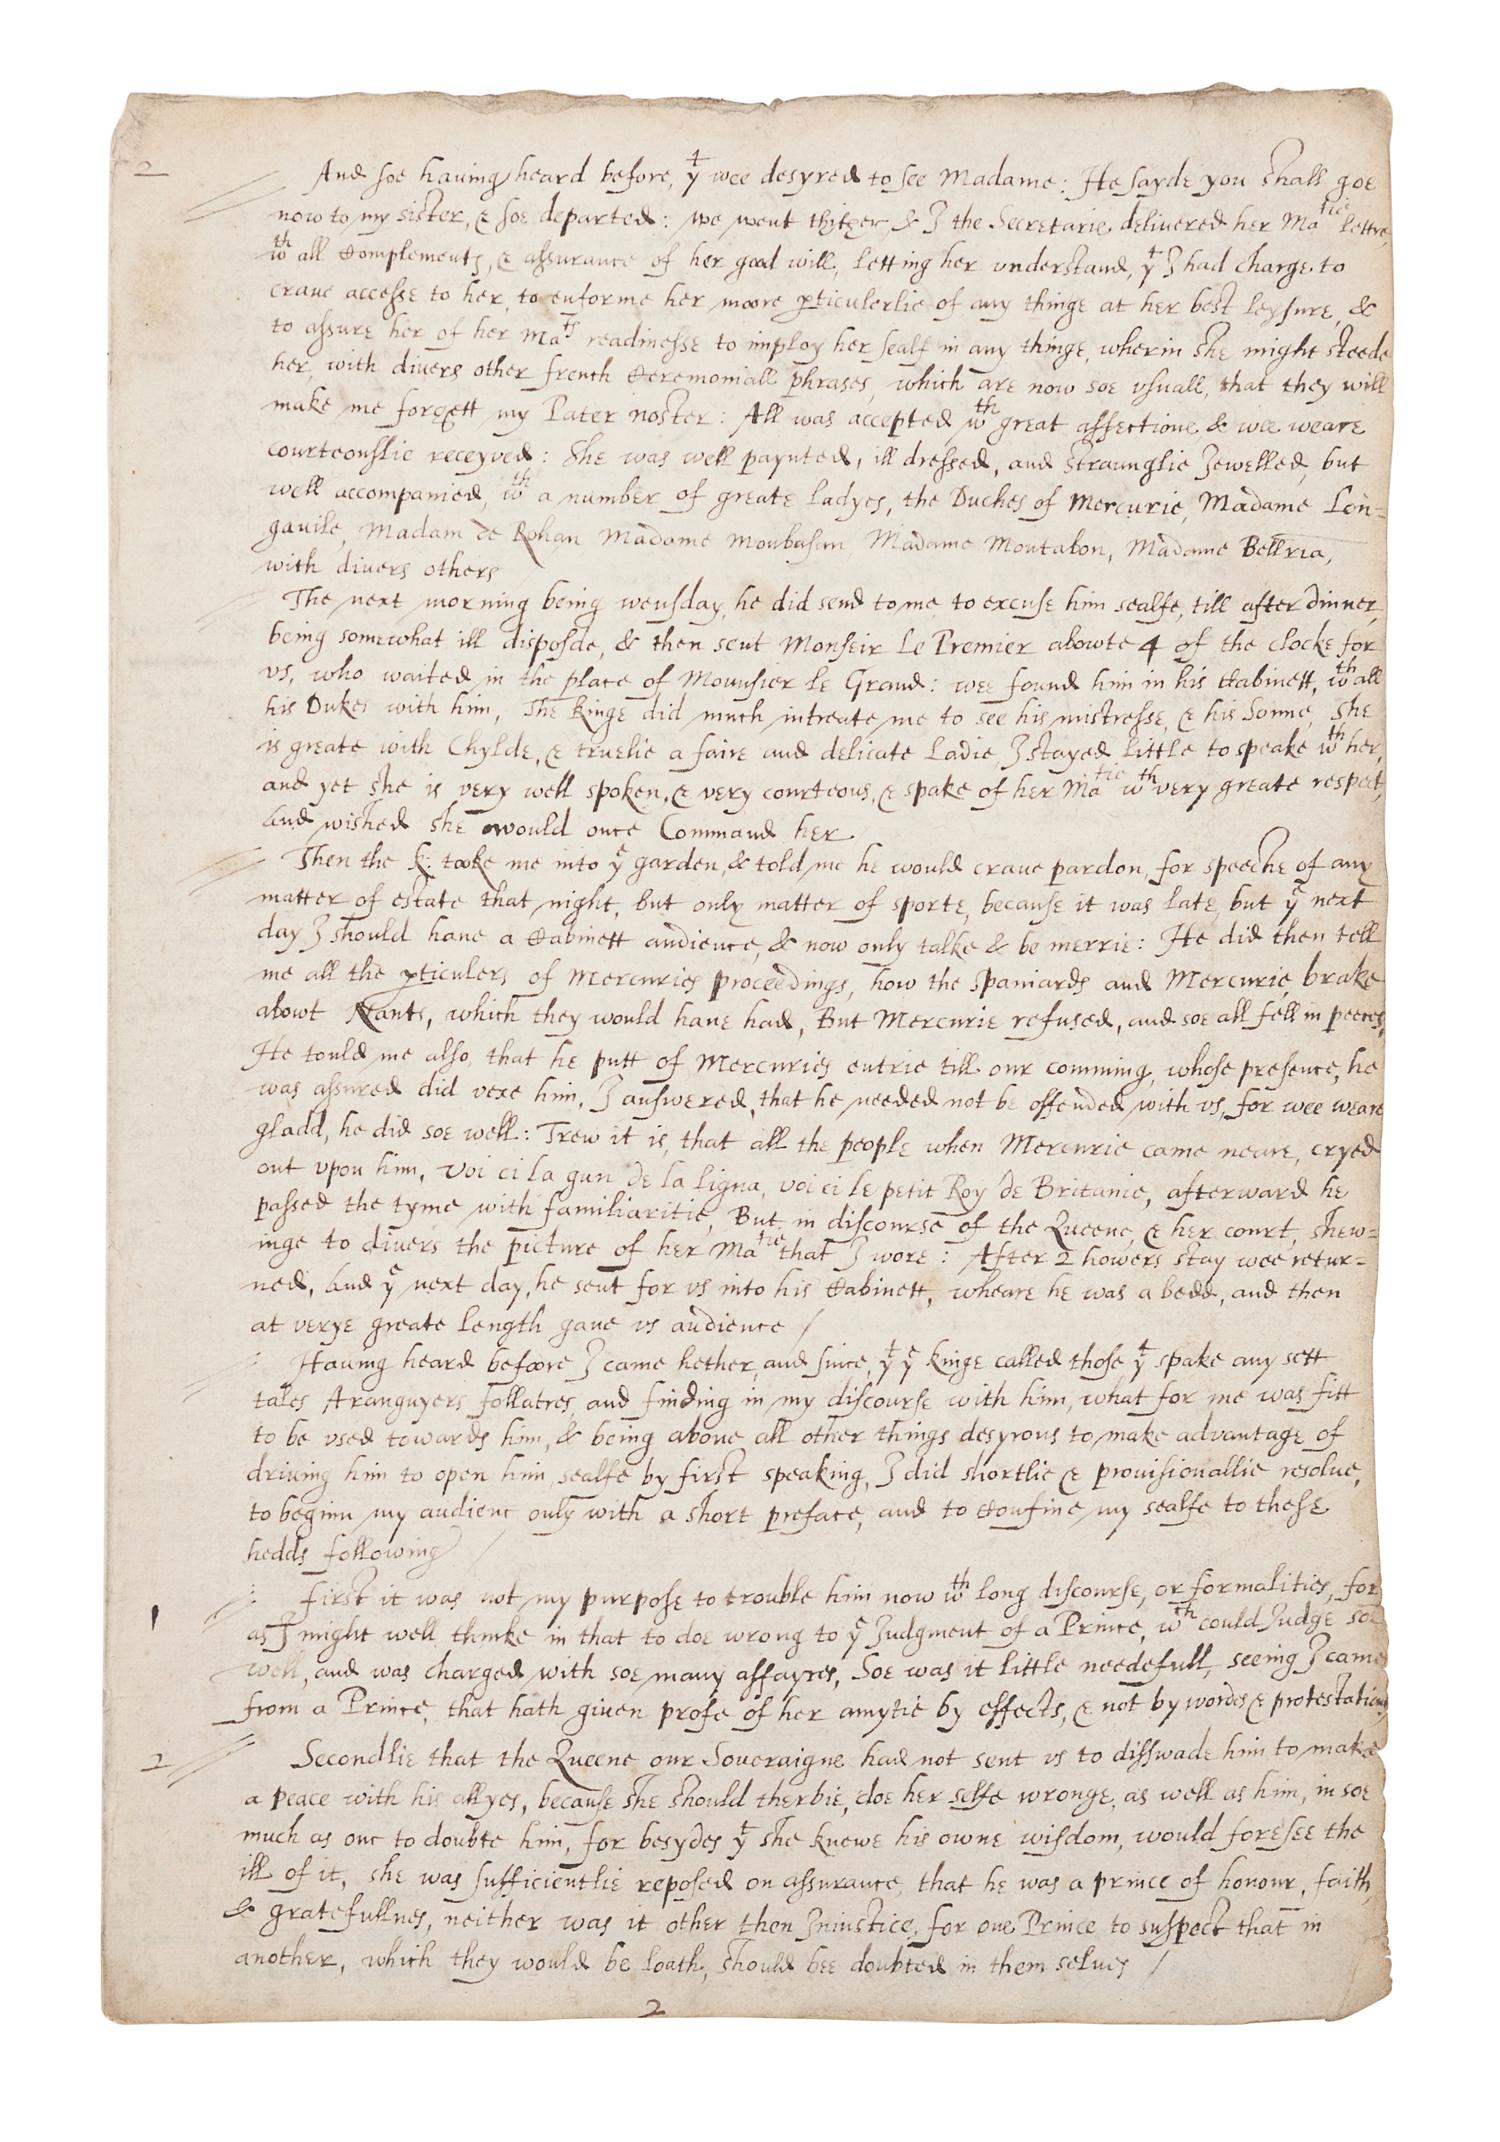 2
And soe hauing heard before, yt wee desyred to see Madame: He sayde you shall goe
now to my sister, & soe departed: we went thither, & I the Secretarie delivered her Matie lettre,
wth all Complements, & assurance of her good will, letting her vnderstand, yt I had charge to
craue accesse to her, to enforme her moore pticulerlie of any thinge at her best leysure, &
to assure her of her Mats readinesse to imploy her sealf in any thinge, wherin she might steede
her, with divers other french Ceremoniall phrases, which are now soe vsuall, that they will
make me forgett my Pater noster: All was accepted wth great affectione & wee weare
courteouslie receyved: She was well paynted, ill dressed, and straunglie Jewelled, but
well accompanied, wth a number of greate Ladyes, the Duches of Mercurie, Madame Lon-
gauile, Madam de Rohan Madame Monbasan, Madame Montabon, Madame Bellria,
with divers others
The next morning being wensday, he did send to me to excuse him sealfe, till after dinner,
being somewhat ill disposde, & then sent Monseir Le Premier abowte 4 of the clocke for
vs, who waited in the place of Mounsier le Grand: wee found him in his Cabinett, wth all
his Dukes with him, The Kinge did much intreate me to see his mistresse, & his Sonne, She
is greate with Chylde, & truelie a faire and delicate Ladie, I stayed little to speake wth her,
and yet she is very well spoken, & very courteous, & spake of her Matie wth very greate respect,
And wished she would once Command her /
Then the k: tooke me into ye garden, & told me he would craue pardon, for speeche of any
matter of estate that night, but only matter of sporte, because it was late, but ye next
day I should haue a Cabinett audience, & now only talke & be merrie: He did then tell
me all the pticulers of Mercuries proceedings, how the Spaniards and Mercurie brake
abowt Nants, which they would haue had, But Mercurie refused, and soe all fell in peeces,
He tould me also, that he putt of Mercuries entrie till our comming, whose presence, he
was assured did vexe him, I answered, that he needed not be offended with vs, for wee weare
gladd, he did soe well: Trew it is, that all the people when Mercurie came neare, cryed
out vpon him, voi ci la gun de la ligna, voi ci le petit Roy de Britanie, afterward he
passed the tyme with familiaritie, But in discourse of the Queene, & her court, shew-
inge to divers the picture of her Matie that I wore: After 2 howers stay wee retur-
ned, And ye next day, he sent for vs into his Cabinett, wheare he was a bedd, and then
at verye greate length gaue vs audience /
Hauing heard befoore I came hether, and since, yt ye kinge called those yt spake any sett
tales Aranguyers follatres, and finding in my discourse with him, what for me was fitt
to be vsed towards him, & being aboue all other things desyrous to make advantage of
driuing him to open him sealfe by first speaking, I did shortlie & prouisionallie resolue,
to beginn my audienc only with a short preface, and to Confine my sealfe to these
hedds following /
1 First it was not my purpose to trouble him now wth long discourse, or formalities, for
as I might well thinke in that to doe wrong to ye Judgment of a Prince, wch could Judge soe
well, and was charged with soe many affayres, Soe was it little needefull, seeing I came
from a Prince, that hath giuen profe of her amytie by effects, & not by wordes & protestations
2 Secondlie that the Queene our Soueraigne had not sent vs to disswade him to make
a peace with his allyes, because she should therbie, doe her selfe wronge, as well as him, in soe
much as onc to doubte him, for besydes yt she knewe his owne wisdom, would foresee the
ill of it, she was sufficientlie reposed on assurance, that he was a prince of honour, faith,
& gratefullnes, neither was it other then Iniustice, for one Prince to suspect that in
another, which they would be loath, should bee doubted in them selues /
2